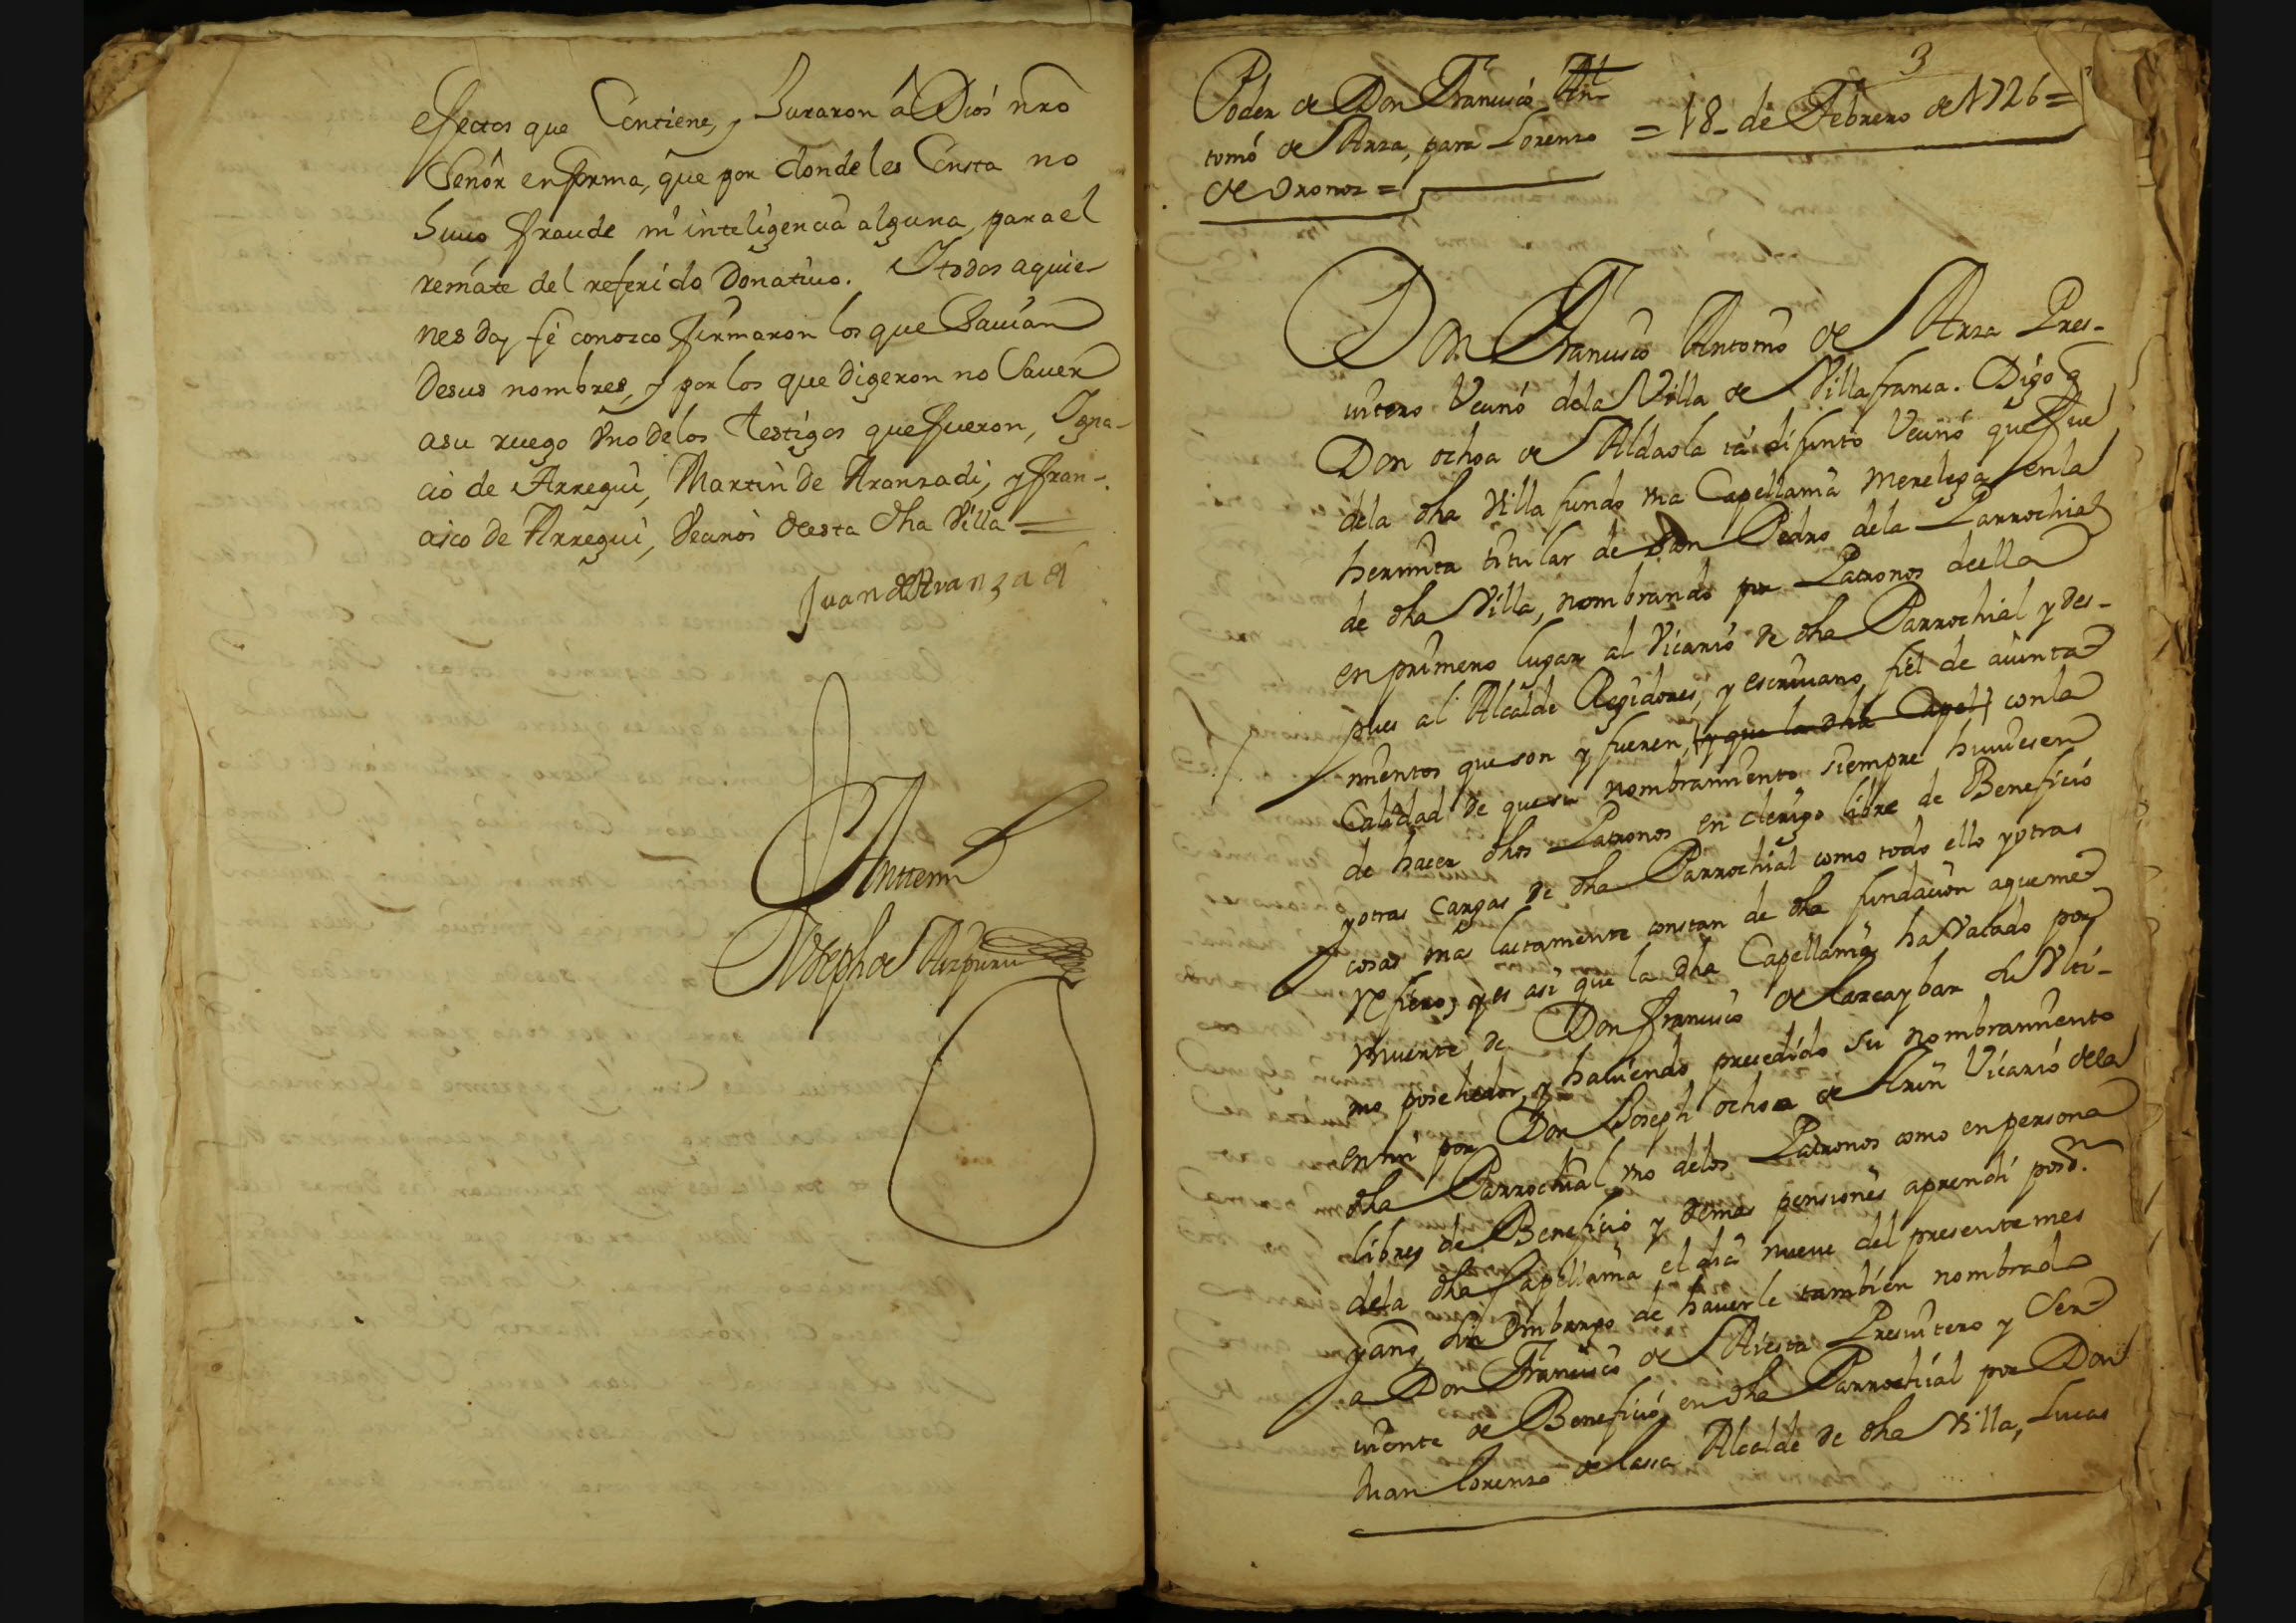 efectos que Contiene, y Juraron á Dios nro
Señor en forma, que por donde les Consta no
huuo fraude ni inteligencia alguna, para el
remate del referido Donatiuo. Y todos aquie-
nes doy fé conozco firmaron los que Sauian
de sus nombres, y por los que digeron no Sauer
a su ruego vno de los testigos que fueron, Igna-
cio de Arregui, Martin de Aranzadi, y fran-
cisco de Arregui, Vecinos desta dha Villa =
Juan de Aranzadi
Antemi
Joseph de Aizpuru
3
Poder de Don Francisco An-
tonio de Arza, para Lorenzo = 18 de Febrero de 1726 =
de Oronoz =
Don Francisco Antonio de Arza Pres-
uitero Vecino dela Villa de Villafranca. Digo q
Don ochoa de Aldaola ia difunto Vecino que fue
dela dha Villa fundo vna Capellania merelega en la
hermita titular de San Pedro dela Parrochial
de dha Villa, nombrando por Patronos de ella
en primero lugar al Vicario de dha Parrochial y des-
pues al Alcalde Regidores, y escriuano fiel de aiunta-
mientos que son y fueren, y que la dha Capel con la
Calidad de que su nombramiento siempre huuiesen
de hacer dhos Patronos en clerigo libre de Beneficio
y otras cargas de dha Parrochial como todo ello y otras
cosas mas lactamente constan de dha fundacion aqueme
Refiero, y es asi que la dha Capellania ha Vacado por
muerte de Don francisco de Larcaybar su Vlti-
mo posehedor, y hauiendo precedido su nombramiento
en mi por Don Joseph ochoa de Arin Vicario de la
dha Parrochial vno delos Patronos como en persona
libres de Beneficio y demas pensiones aprendi poss.n
dela dha Capellania el dia nueue del presente mes
y año, sin embargo de hauerle tambien nombrado
a Don Francisco de Aiesta Presuitero y Ser-
uiente de Beneficio en dha Parrochial por Don
Juan Lorenzo de Lasa Alcalde de dha Villa, Lucas